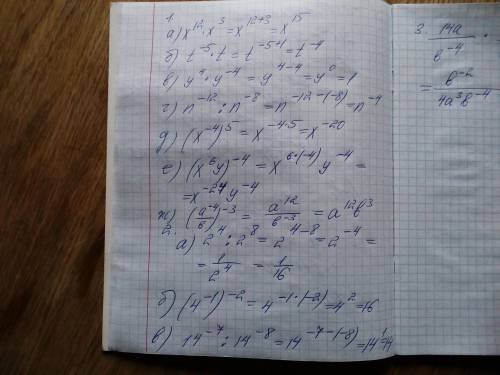 1.
а) x^12 · x^3 = x^12+3 = x^15
б) t^-5 · t = t^-5+1 = t^-4
в) y^4 · y^-4 = y^4-4 = y^0 = 1
г) n^-12 : n^-8 = n^-12-(-8) = n^-4
д) (x^-4)^5 = x^-4·5 = x^-20
е) (x^6y)^-4 = x^6·(-4) y^-4 =
= x^-24 y^-4
ж) (a^-4/b)^-3 = a^12/b^-3 = a^12b^3
2.
а) 2^4 : 2^8 = 2^4-8 = 2^-4 =
= 1/2^4 = 1/16
б) (4^-1)^-2 = 4^-1·(-2) = 4^2 = 16
в) 14^-7 : 14^-8 = 14^-7-(-8) = 14^1 = 14
3. 14a/b^-4 ·
= b^-2/4a^3b^-4